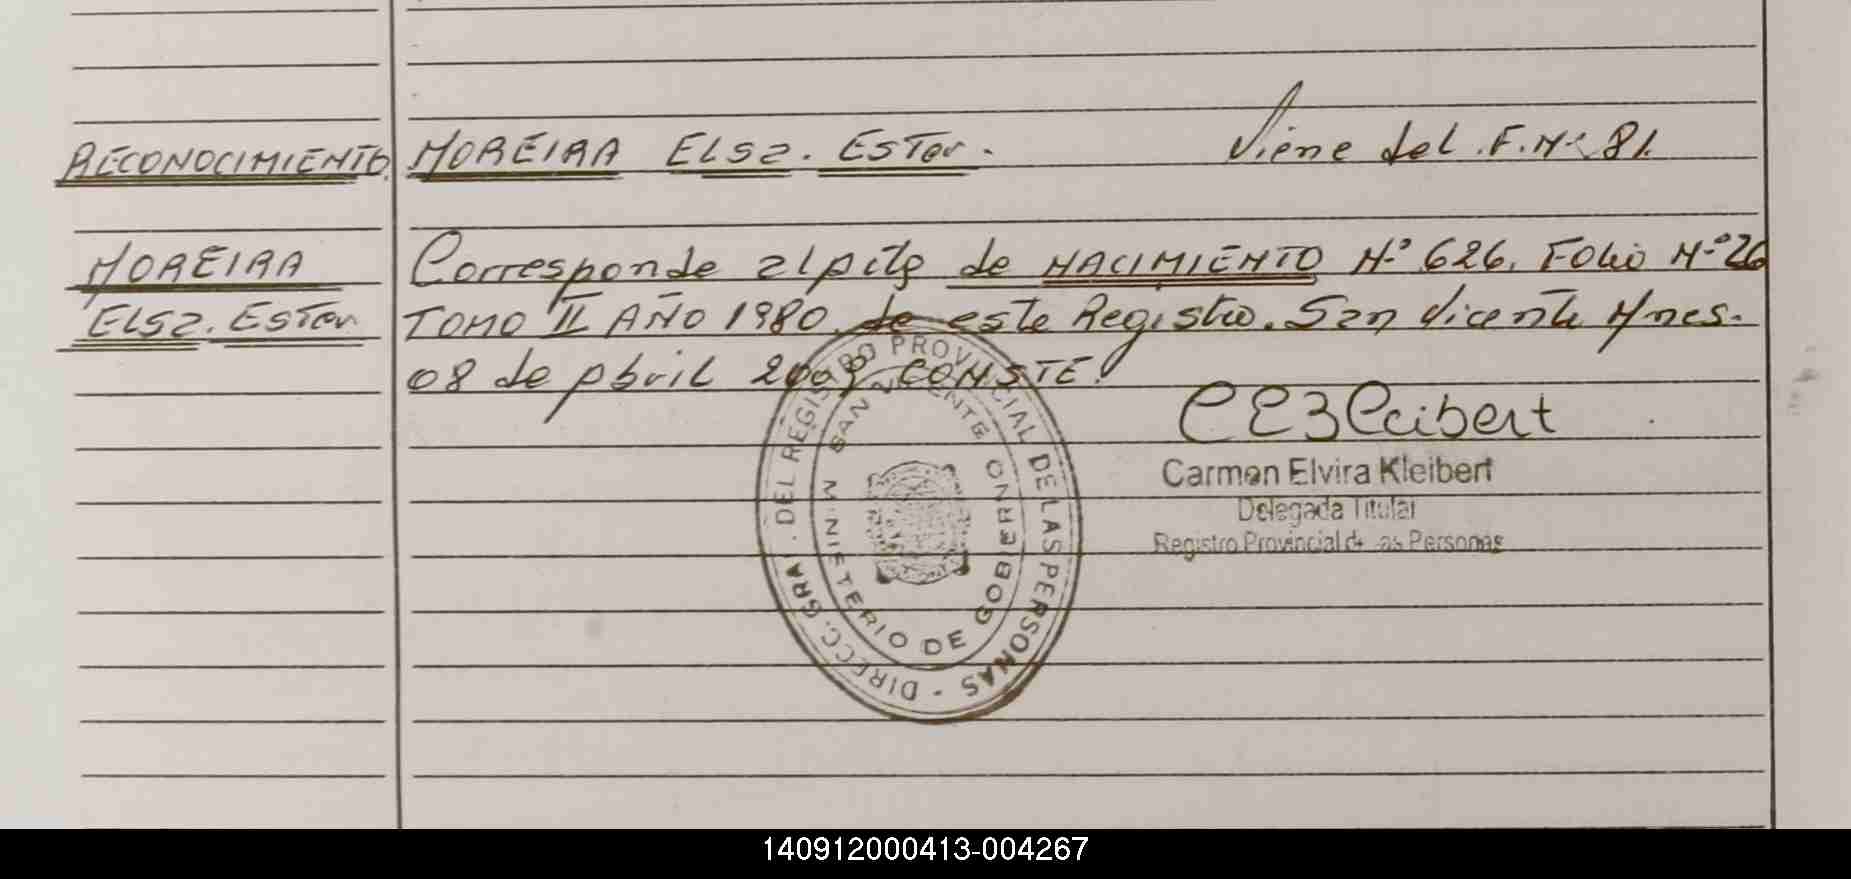 RECONOCIMIENTO. MOREIRA ELSa. ESTer. Viene del F. Nº 81.
MOREIRA
ELSa. ESTer
Corresponde al de NACIMIENTO Nº 626. FOLIO Nº 26
TOMO II AÑO 1980 de este Registro. San Vicente Mnes.
08 de Abril 2009 CONSTE.
Carmen Elvira Kleibert
Delegada Titular
Registro Provincial de as Personas
DIRECC. GRAL. DEL REGISTRO PROVINCIAL DE LAS PERSONAS -
MINISTERIO DE GOBIERNO
SAN VICENTE
140912000413-004267